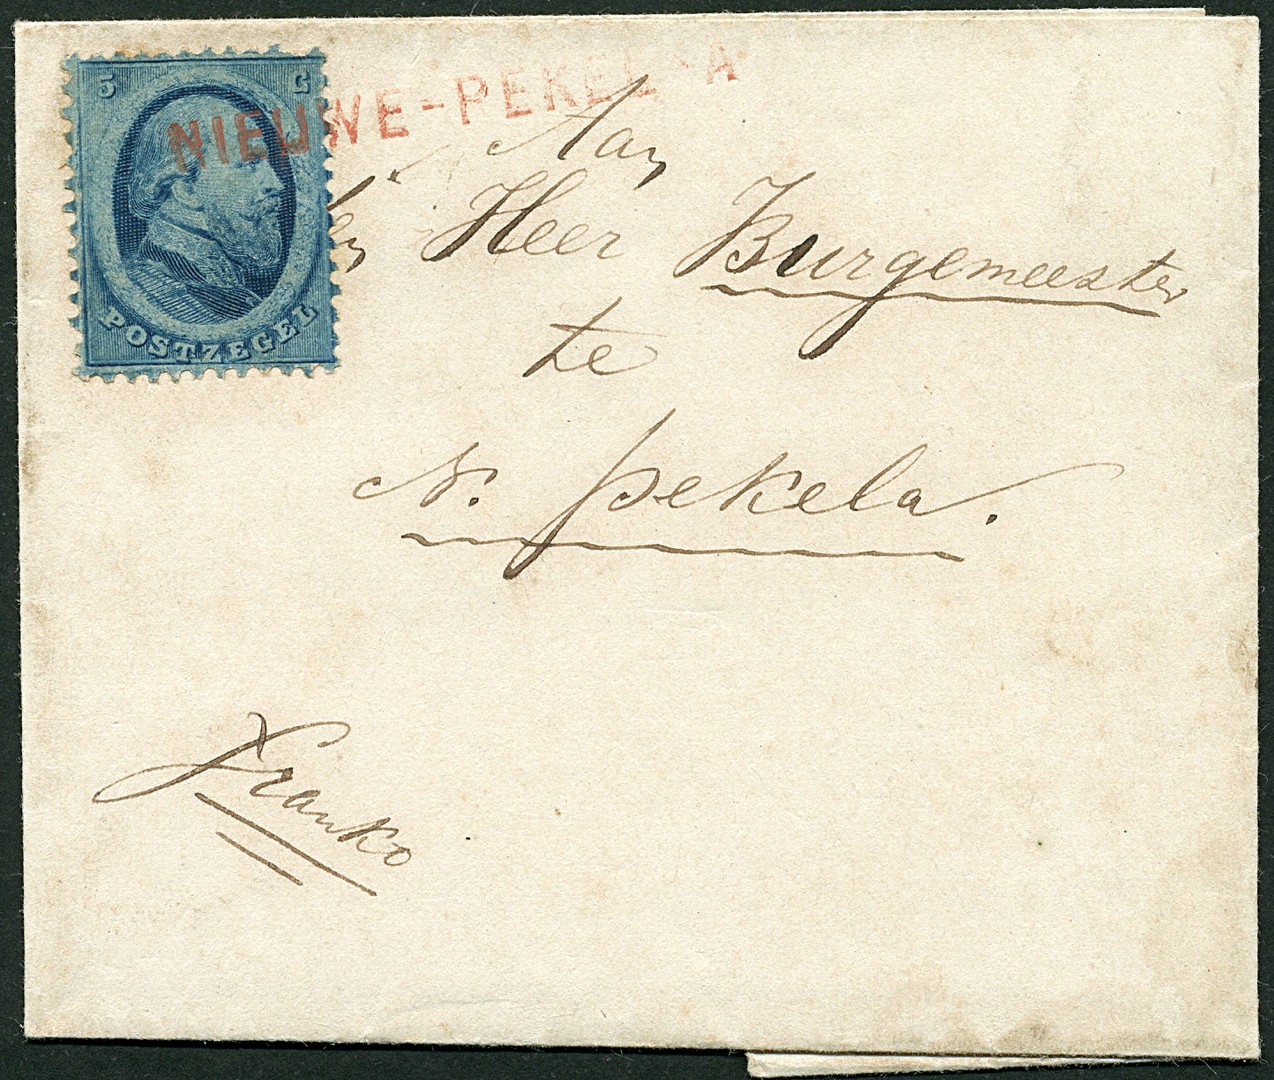 5 C
POSTZEGEL
NIEUWE-PEKEL A
Aan
den Heer Burgemeester
te
N. pekela.
Franko